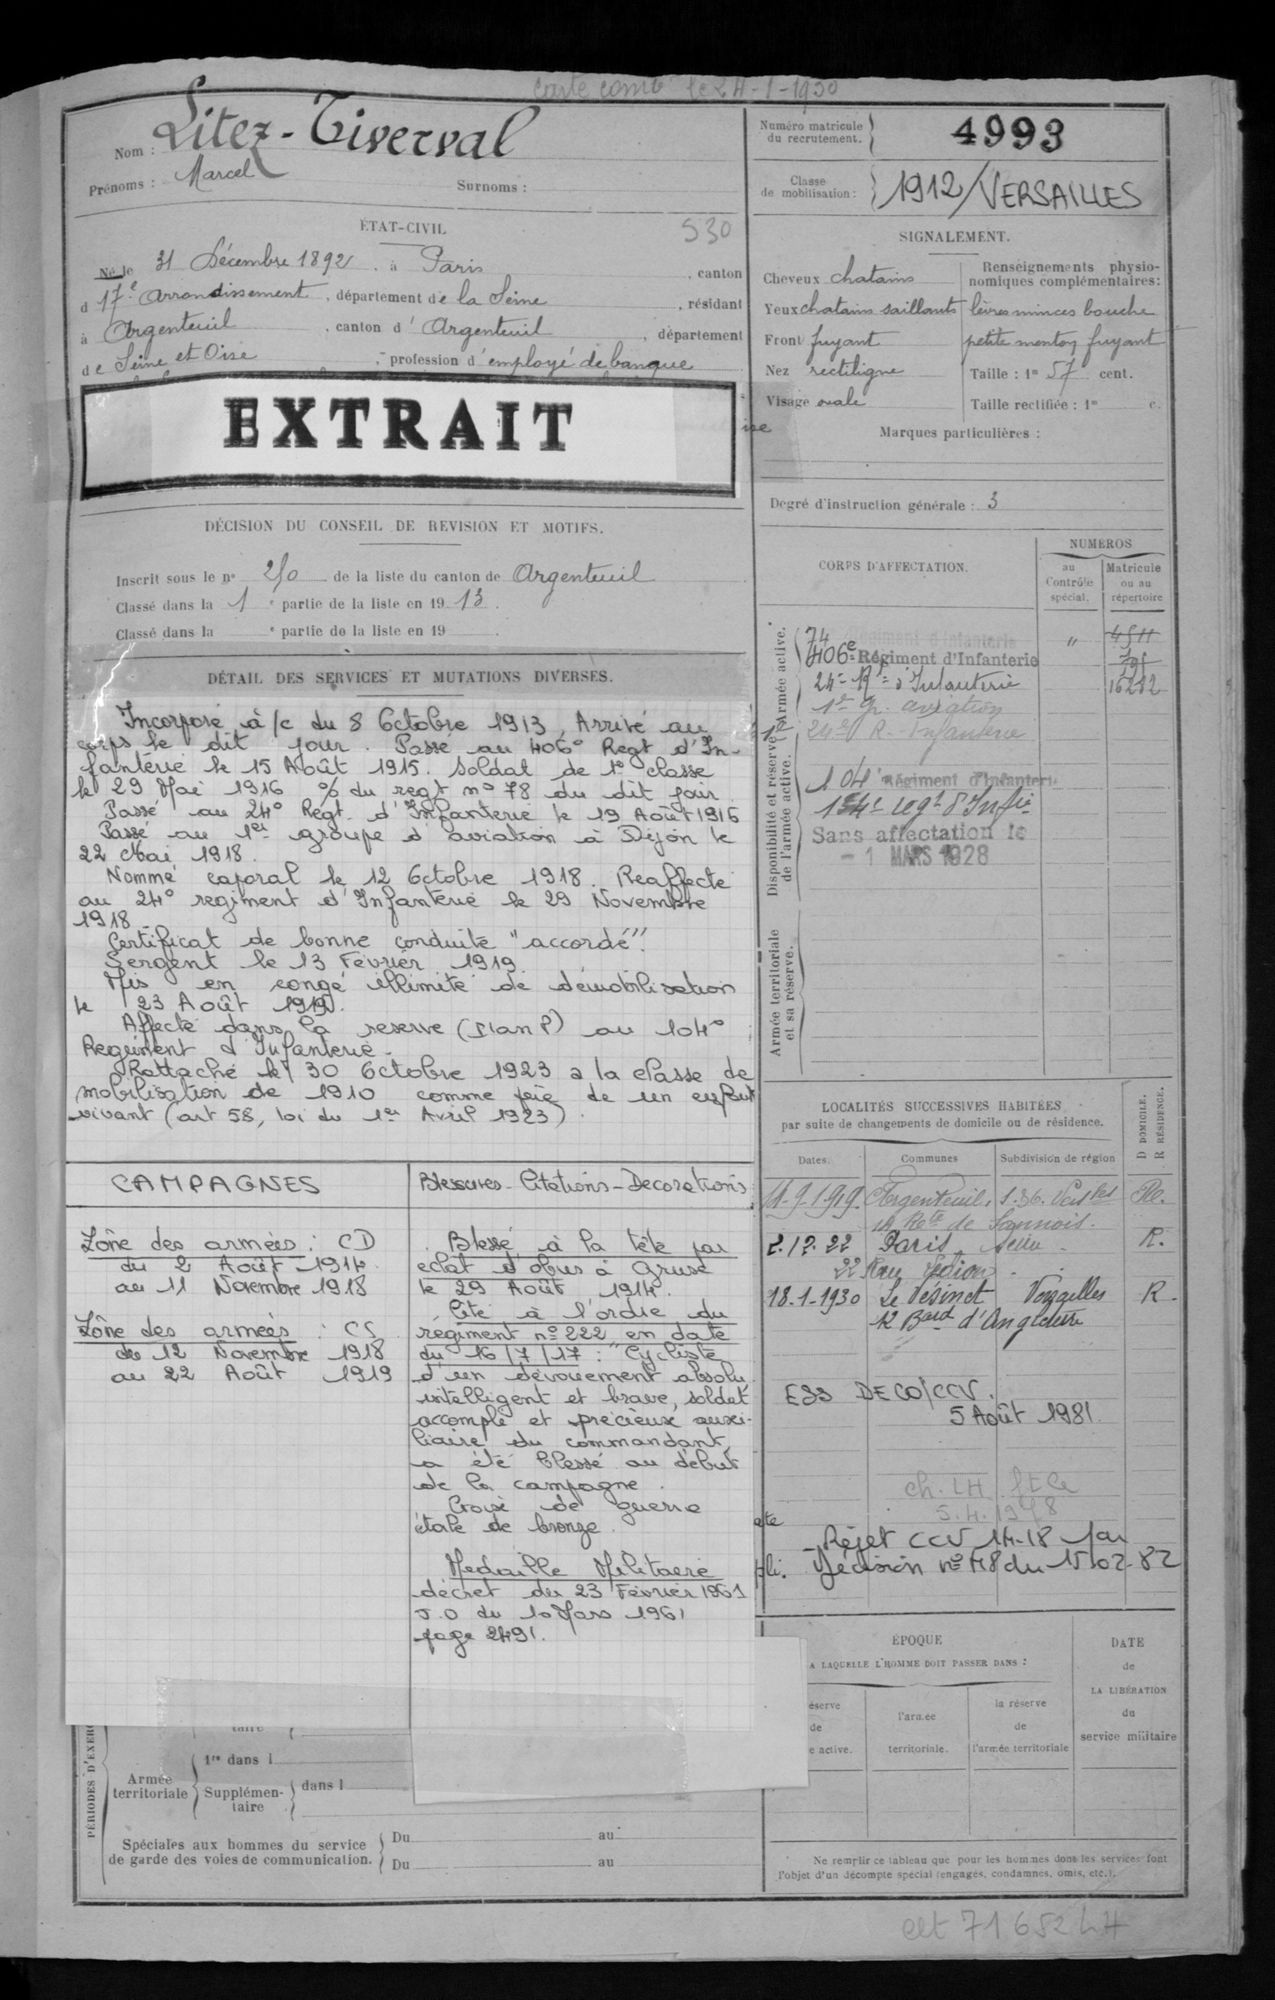 carte comb le 24-1-1930
Nom : Litez-Tiverval
Prénoms : Marcel Surnoms :
ÉTAT-CIVIL
530
Né le 31 Décembre 1892 . à Paris , canton
d 17e Arrondissement , département de la Seine , résidant
à Argenteuil , canton d' Argenteuil , département
de Seine et Oise , profession d'employé de banque
EXTRAIT
DÉCISION DU CONSEIL DE REVISION ET MOTIFS.
Inscrit sous le n° 210 de la liste du canton de Argenteuil
Classé dans la 1 e partie de la liste en 19 13.
Classé dans la e partie de la liste en 19 .
DÉTAIL DES SERVICES ET MUTATIONS DIVERSES.
Incorporé à /c du 8 Octobre 1913, Arrivé au
corps le dit jour. Passé au 406° Regt d'In-
fanterie le 15 Août 1915. Soldat de 1e classe
le 29 Mai 1916 % du regt n° 78 du dit jour
Passé au 24° Regt. d'Infanterie le 19 Août 1916
Passé au 1er groupe d'aviation à Dijon le
22 Mai 1918.
Nommé caporal le 12 Octobre 1918. Reaffecté
au 24° regiment d'Infanterie le 29 Novembre
1918
Certificat de bonne conduite "accordé".
Sergent le 13 Février 1919.
Mis en congé illimité de démobilisation
le 23 Août 1919.
Affecté dans la reserve (Plan P) au 104°
Regiment d'Infanterie.
Rattaché le 30 Octobre 1923 a la classe de
mobilisation de 1910 comme père de un enfant
vivant (art 58, loi du 1er Avril 1923)
CAMPAGNES
Zône des armées : CD
du 2 Août 1914
au 11 Novembre 1918
Zône des armées : CS
du 12 Novembre 1918
au 22 Août 1919
Blessures - Citations - Decorations
Blessé à la tête par
éclat d'obus à Gruse
le 29 Août 1914.
Cité à l'ordre du
régiment n° 222 en date
du 16/7/17 : "Cycliste
d'un dévouement absolu
intelligent et brave, soldat
accompli et précieux auxi-
liaire du commandant,
a été blessé au début
de la campagne.
Croix de guerre
étoile de bronze.
Medaille Militaire
décret du 23 Février 1961
J.O du 10 Mars 1961
page 2491.
PÉRIODES D'EXER
taire
Armée territoriale
1re dans l
Supplémen-
taire
dans l
Spéciales aux hommes du service
de garde des voies de communication.
Du au
Du au
Numéro matricule
du recrutement.
4993
Classe
de mobilisation :
1912/VERSAILLES
SIGNALEMENT.
Cheveux chatains
Yeux chatains saillants
Front fuyant
Nez rectiligne
Visage ovale
Renseignements physio-
nomiques complémentaires:
lèvres minces bouche
petite menton fuyant
Taille : 1m 57 cent.
Taille rectifiée : 1m c.
Marques particulières :
Degré d'instruction générale : 3
CORPS D'AFFECTATION.
NUMEROS
au
Contrôle
spécial.
Matricule
ou au
répertoire
Armée active.
74 Régiment d'Infanterie " 4511
406e Régiment d'Infanterie
24e Rt d'Infanterie 16212
1er gr. aviation
Disponibilité et réserve
de l'armée active.
24e R. Infanterie
104e Régiment d'Infanterie
154e regt d'Infie
Sans affectation le
- 1 MARS 1928
Armée territoriale
et sa réserve.
LOCALITÉS SUCCESSIVES HABITÉES
par suite de changements de domicile ou de résidence.
D DOMICILE.
R RÉSIDENCE.
Dates. Communes Subdivision de région
11.9.1919. Argenteuil, 1.36.
Rte de Sannois.
2.12.22 Paris Seine R.
22 Rue Rédion
18-1-1930 Le Vésinet Versailles R.
12 Bard d'Angleterre
ESS DECO/CCV.
5 Août 1981.
ch. LH
5.4.1978
Rejet CCV 14-18 par
Décision n° 48 du 15-02-82
ÉPOQUE
A LAQUELLE L'HOMME DOIT PASSER DANS :
éserve
de
e active.
l'armée
territoriale.
la réserve
de
l'armée territoriale
DATE
de
LA LIBÉRATION
du
service militaire
Ne remplir ce tableau que pour les hommes dont les services font
l'objet d'un décompte spécial (engagés, condamnés, omis, etc.).
clt 7165244